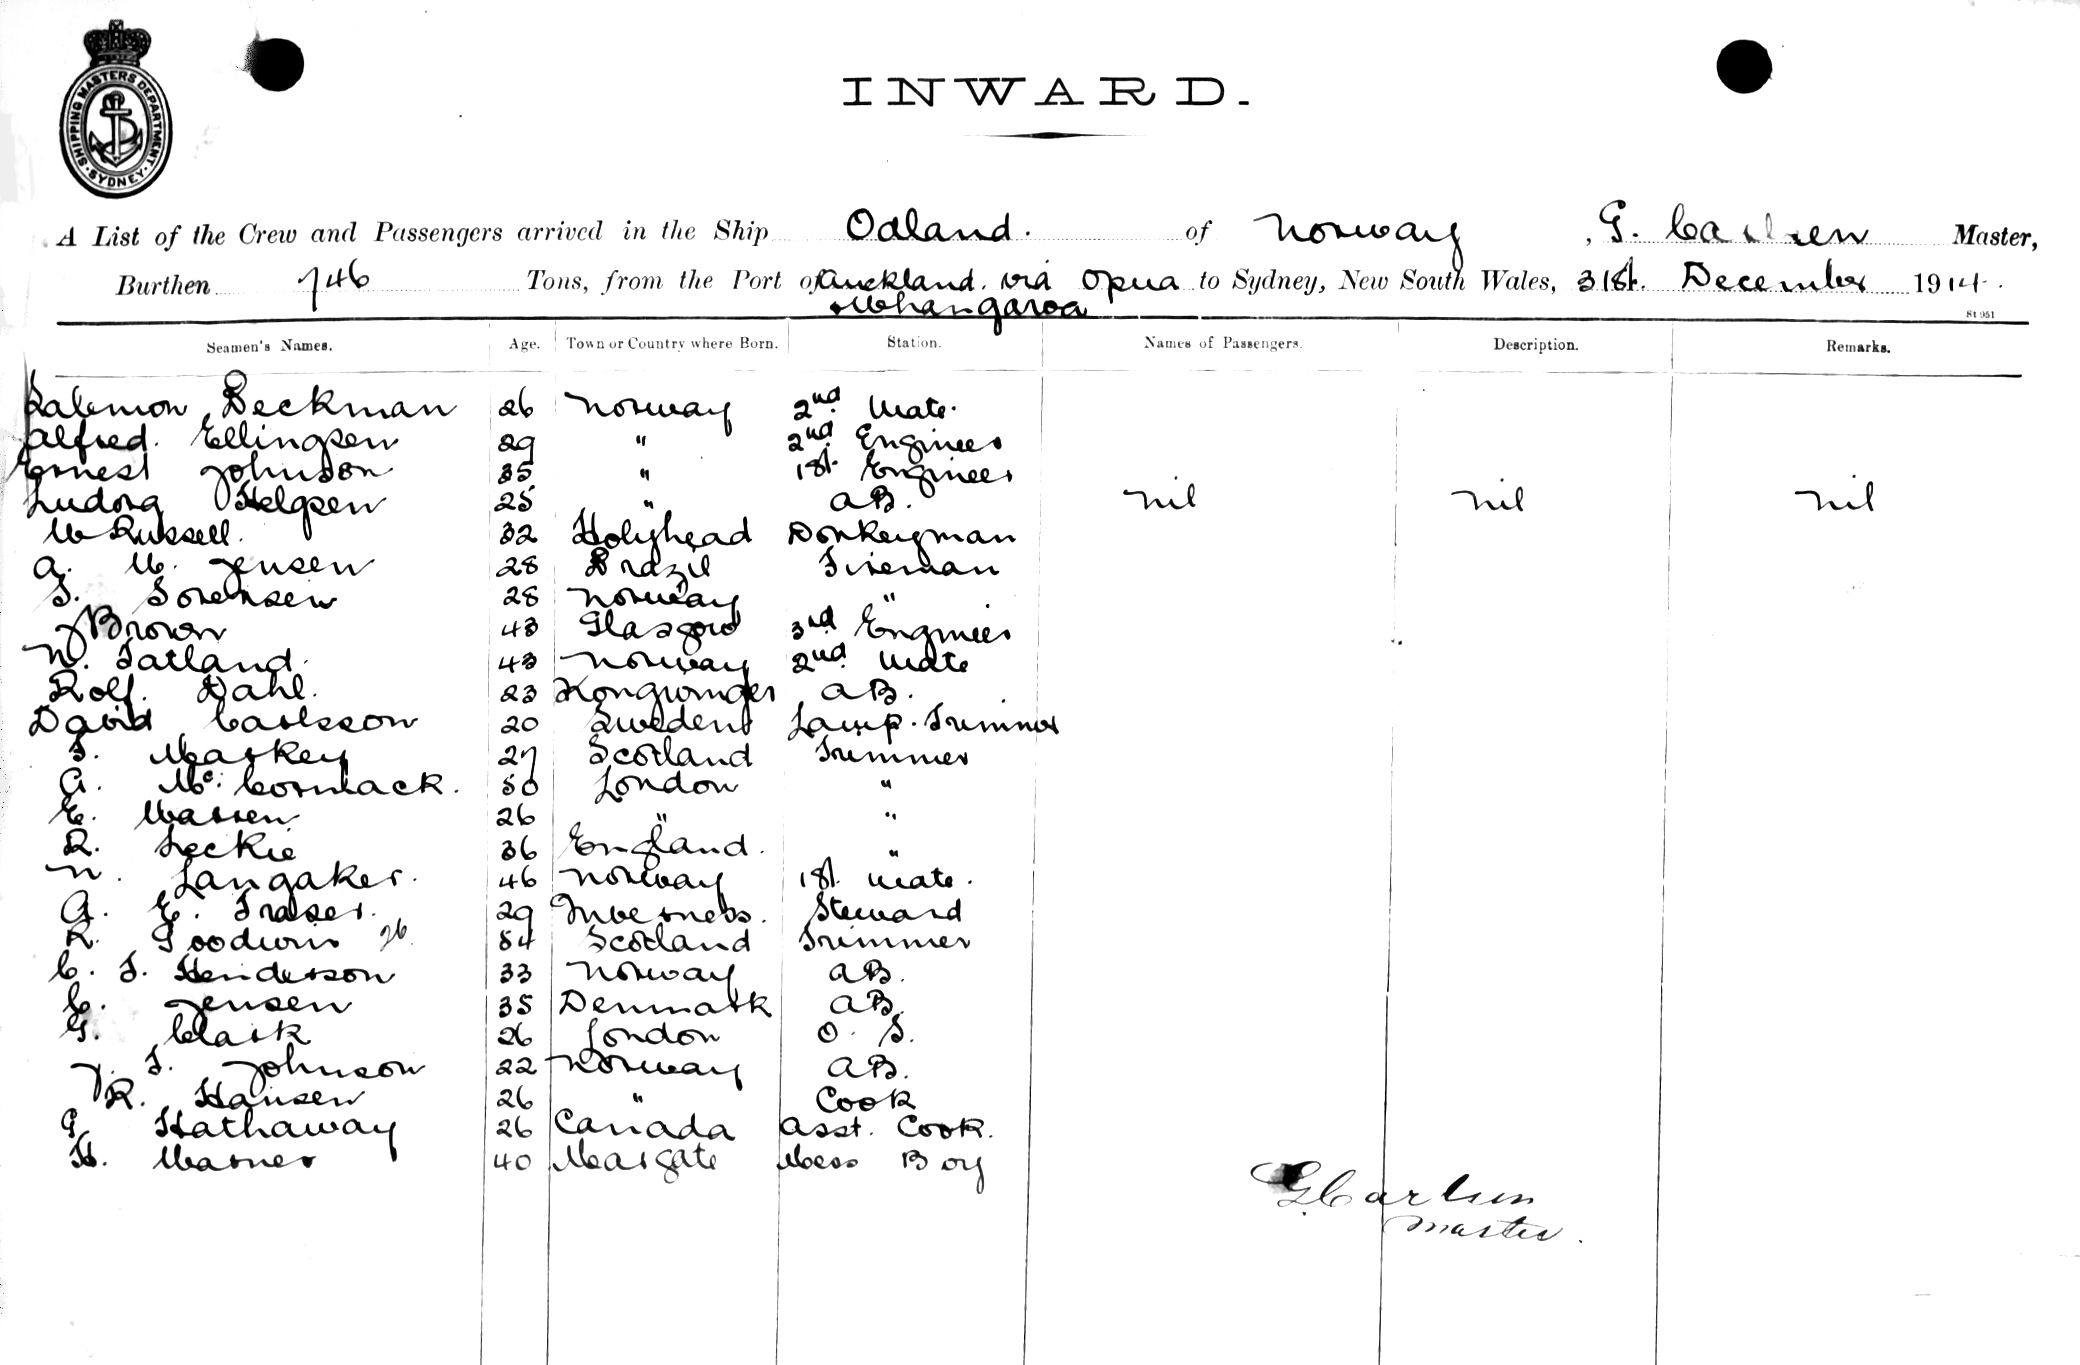 SHIPPING MASTERS DEPARTMENT SYDNEY
INWARD.
A List of the Crew and Passengers arrived in the Ship Odland. of Norway, G. Carlsen Master,
Burthen 746 Tons, from the Port of Auckland. via Opua to Sydney, New South Wales, 31st. December 1914.
& Whangaroa
St 951
Seamen's Names. Age. Town or Country where Born. Station. Names of Passengers. Description. Remarks.
Salemon Beckman 26 Norway 2nd Mate.
Alfred. Ellingsen 29 " 2nd Engineer
Ernest Johnson 35 " 1st. Engineer
Ludvig Helgsen 25 " AB. Nil Nil Nil
W Russell. 32 Holyhead Donkeyman
A. M. Jensen 28 Brazil Fireman
S. Sorensen 28 Norway "
J Brown 43 Glasgow 3rd Engineer
N. Tatland. 43 Norway 2nd Mate
Rolf. Dahl. 23 Kongvinger AB.
David Carlsson 20 Sweden Lamp. Trimmer
T. Markey 27 Scotland Trimmer
A. Mc. Cormack. 50 London "
E. Warren 26 " "
R. Leckie 36 England. "
N. Langaker. 46 Norway 1st. Mate.
A. E. Fraser. 29 Inverness. Steward
R. Goodwin 26 54 Scotland Trimmer
C. T. Henderson 33 Norway AB.
C. Jensen 35 Denmark AB.
G. Clark 26 London O. S.
J. T. Johnson 22 Norway AB.
R. Hansen 26 " Cook
G Hathaway 26 Canada Asst. Cook.
H. Warner 40 Margate Mess Boy
G Carlsen
Master.